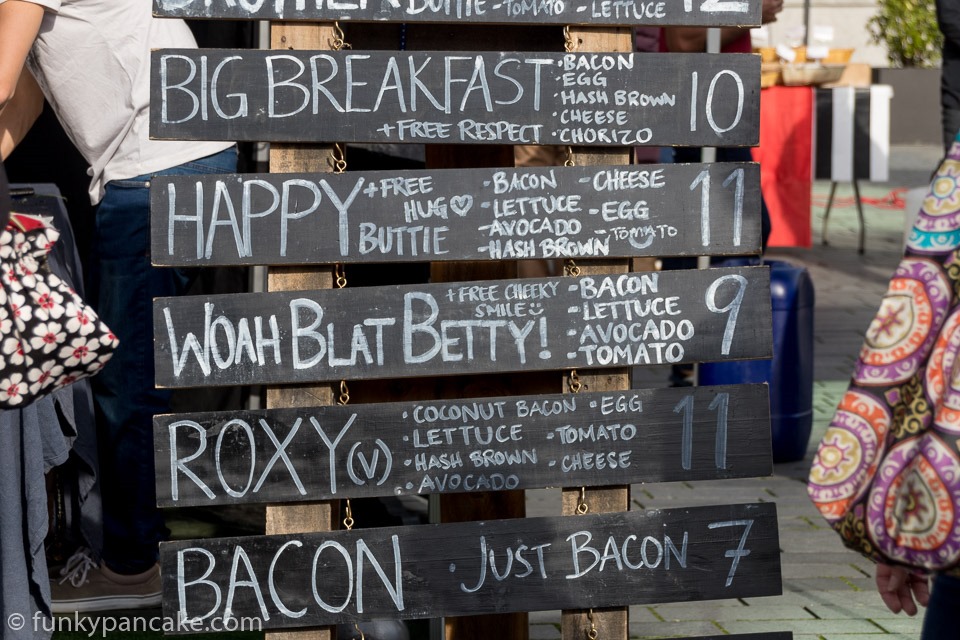 BUTTIE - TOMATO - LETTUCE 12
BIG BREAKFAST
+ FREE RESPECT
· BACON
· EGG
· HASH BROWN
· CHEESE
· CHORIZO
10
HAPPY
+ FREE
HUG♡
BUTTIE
- BACON - CHEESE
- LETTUCE - EGG
- AVOCADO - TOMATO
- HASH BROWN
11
WOAH BLAT BETTY!
+ FREE CHEEKY
SMILE☺
- BACON
- LETTUCE
- AVOCADO
- TOMATO
9
ROXY (V)
· COCONUT BACON · EGG
· LETTUCE · TOMATO
· HASH BROWN · CHEESE
· AVOCADO
11
BACON · JUST BACON 7
© funkypancake.com